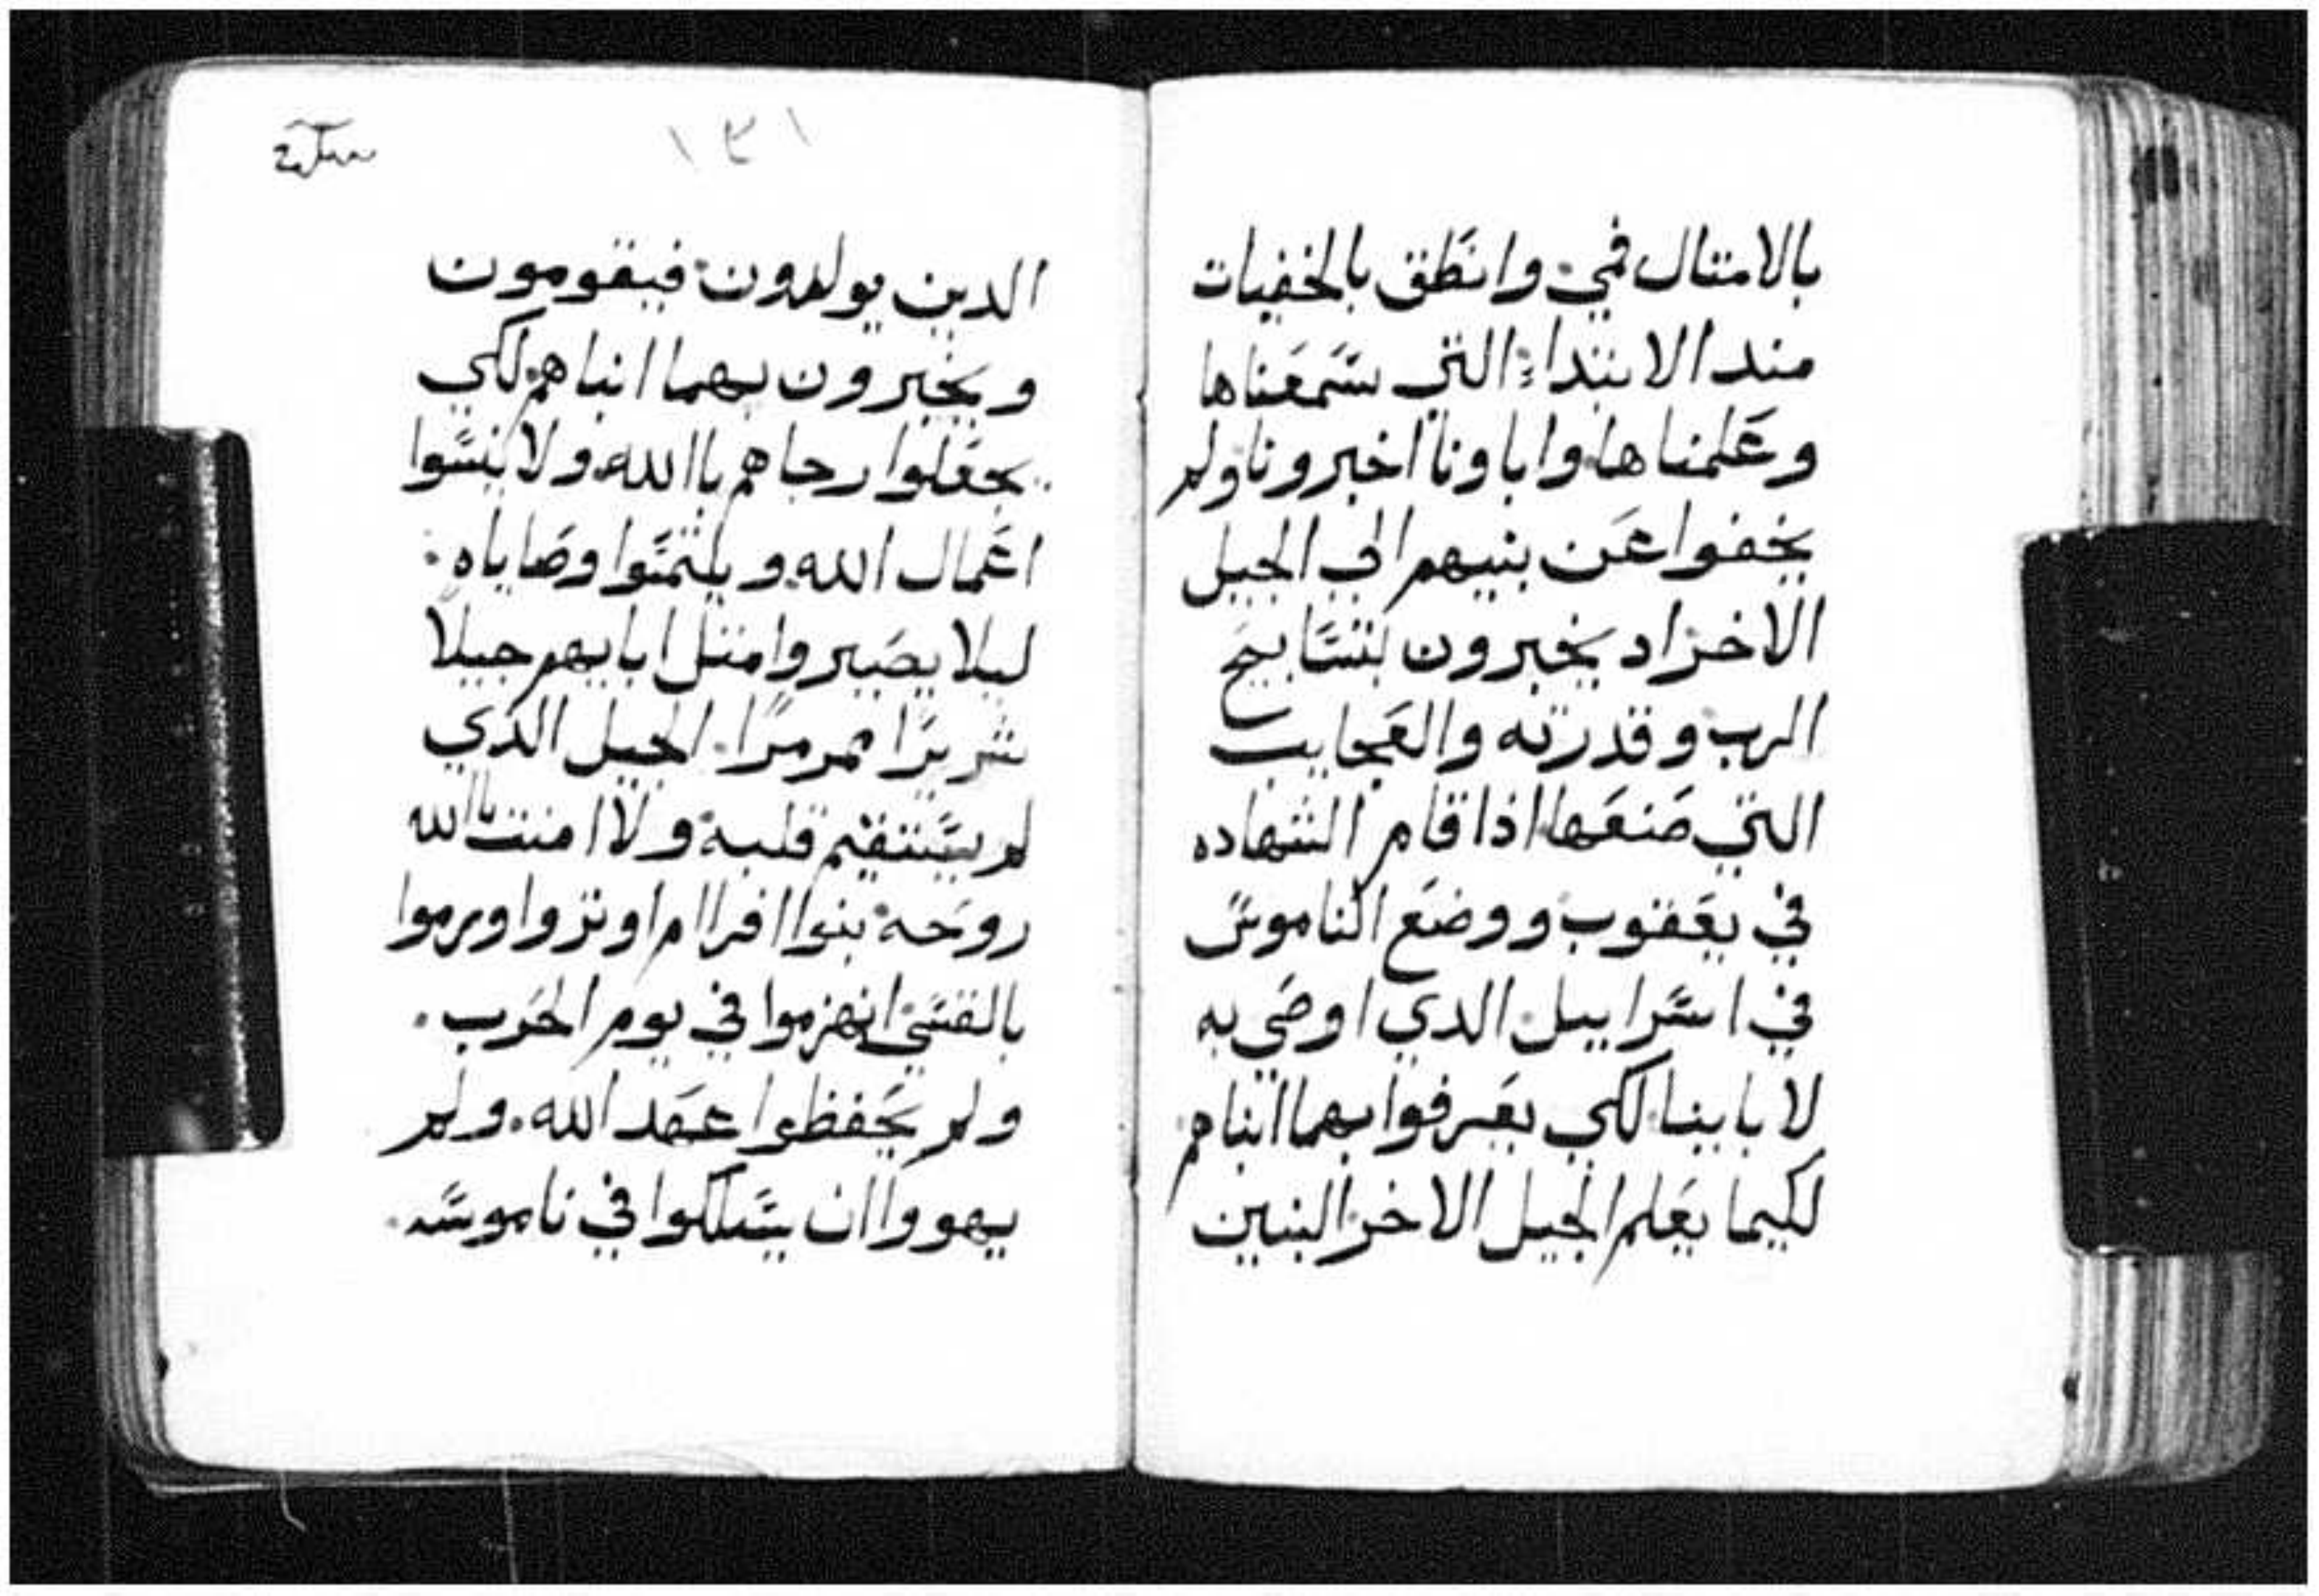 بالامتال فمي وانطق بالخفيات
مند الابتداء التي سمعناها
وعلمناها واباونا اخبرونا ولم
يخفوا عن بنيهم الي الجيل
الاخر اد يخبرون بتسابيح
الرب وقدرته والعجايب
التي صنعها اذا قام الشهاده
في يعقوب ووضع الناموس
في اسراييل الدي اوصي به
لابابينا لكي يعرفوا بهما ابناهم
لكيما يعلم الجيل الاخر البنين
١٣١
الدين يولدون فيقومون
ويخبرون بهما ابناهم لكي
يجعلوا رجاهم باالله ولا ينسوا
اعمال الله ويلتمسوا وصاياه
ليلا يصيروا متل ابايهم جيلا
شريرا ممرمرا الجيل الدي
لم يستقيم قلبه ولا امنت باالله
روحه بنوا افراام اوتروا ويرموا
بالقسي انهزموا في يوم الحرب
ولم يحفظوا عهد الله ولم
يهووا ان يسلكوا في ناموسه